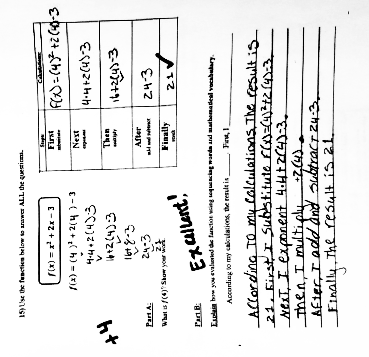 15) Use the function below to answer ALL the questions.
f(x) = x² + 2x - 3
f(x) = (4)² + 2(4) - 3
4·4 + 2(4) - 3
16 + 2(4) - 3
16 + 8 - 3
24 - 3
21
+4
Part A:
What is f(4)? Show your work.
Steps
Calculations
First
substitute
F(x) = (4)² + 2(4) - 3
Next
exponent
4·4 + 2(4) - 3
Then
multiply
16 + 2(4) - 3
After
add and subtract
24 - 3
Finally
21 ✓
Part B:
Excellent!
Explain how you evaluated the function using sequencing words and mathematical vocabulary.
According to my calculations, the result is ____. First, I
According to my calculations, the result is
21. First I substitute F(x)=(4)²+2(4)-3.
Next I exponent 4·4+2(4)-3.
Then, I multiply +2(4).
After I add And subtract 24-3.
Finally, the result is 21.